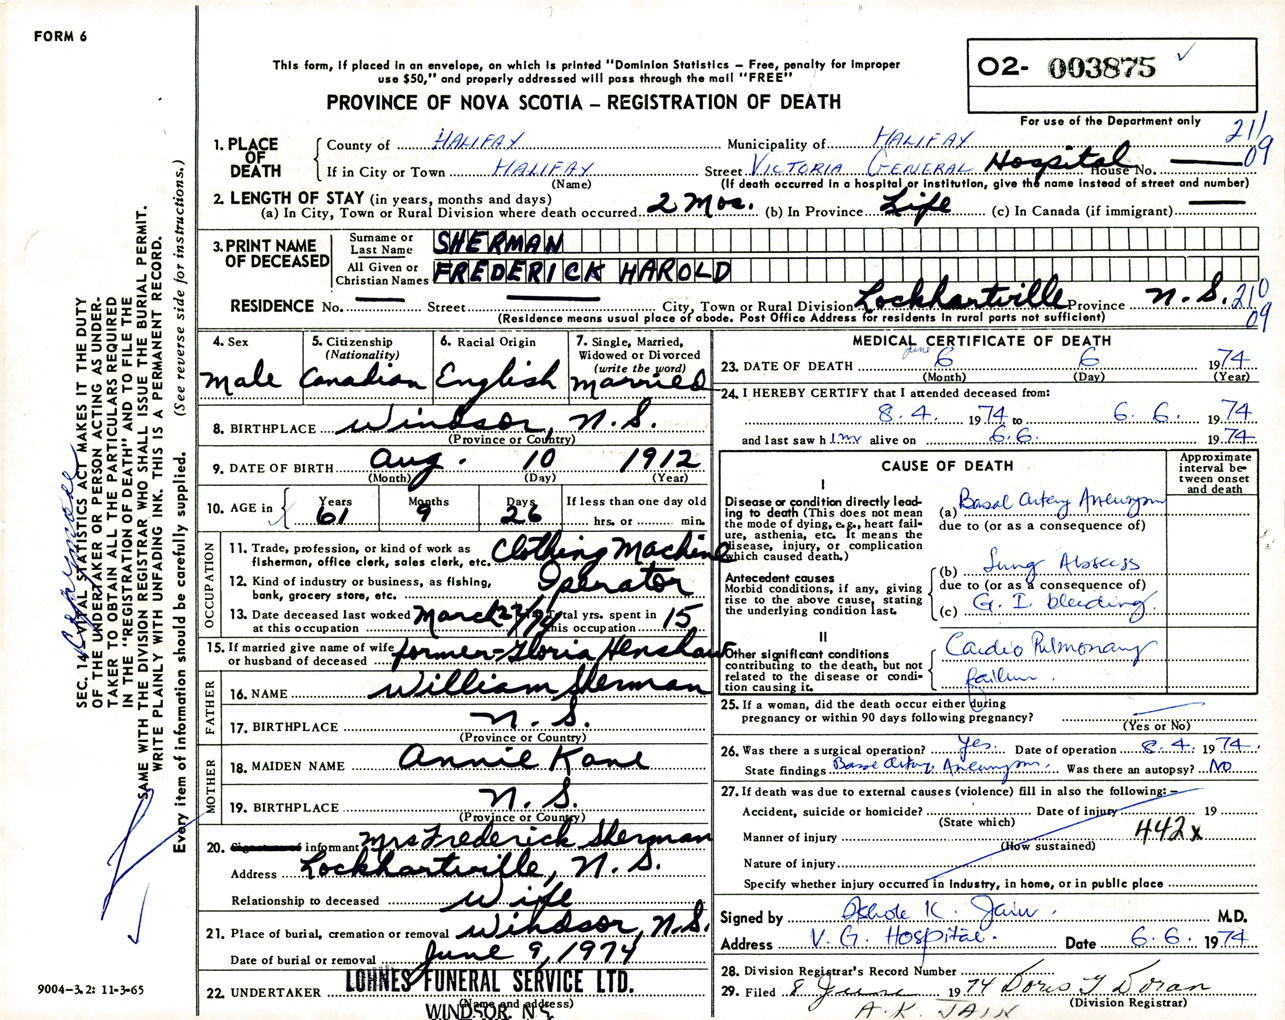 FORM 6
This form, if placed in an envelope, on which is printed "Dominion Statistics – Free, penalty for improper
use $50," and properly addressed will pass through the mail "FREE"
PROVINCE OF NOVA SCOTIA – REGISTRATION OF DEATH
O2- 003875
For use of the Department only
211
09
1. PLACE OF DEATH
County of HALIFAX Municipality of HALIFAX
If in City or Town HALIFAX Street VICTORIA GENERAL Hospital House No. —
(Name) (If death occurred in a hospital or institution, give the name instead of street and number)
2. LENGTH OF STAY (in years, months and days)
(a) In City, Town or Rural Division where death occurred 2 Mos. (b) In Province Life (c) In Canada (if immigrant) —
3. PRINT NAME OF DECEASED
Surname or Last Name SHERMAN
All Given or Christian Names FREDERICK HAROLD
RESIDENCE No. — Street — City, Town or Rural Division Lockhartville Province N.S. 210
09
(Residence means usual place of abode. Post Office Address for residents in rural parts not sufficient)
4. Sex Male
5. Citizenship (Nationality) Canadian
6. Racial Origin English
7. Single, Married, Widowed or Divorced (write the word) Married
8. BIRTHPLACE Windsor, N.S.
(Province or Country)
9. DATE OF BIRTH Aug. 10 1912
(Month) (Day) (Year)
10. AGE in Years 61 Months 9 Days 26 If less than one day old
hrs. or min.
OCCUPATION
11. Trade, profession, or kind of work as fisherman, office clerk, sales clerk, etc. Clothing Machine
12. Kind of industry or business, as fishing, bank, grocery store, etc. Operator
13. Date deceased last worked at this occupation March 27/74 Total yrs. spent in this occupation 15
15. If married give name of wife or husband of deceased former - Gloria Henshaw
FATHER
16. NAME William Sherman
17. BIRTHPLACE N.S.
(Province or Country)
MOTHER
18. MAIDEN NAME Annie Kane
19. BIRTHPLACE N.S.
(Province or Country)
20. Signature of informant Mrs Frederick Sherman
Address Lockhartville, N.S.
Relationship to deceased Wife
21. Place of burial, cremation or removal Windsor, N.S.
Date of burial or removal June 9, 1974
22. UNDERTAKER LOHNES FUNERAL SERVICE LTD.
(Name and address)
WINDSOR, N.S.
MEDICAL CERTIFICATE OF DEATH
23. DATE OF DEATH June 6 6 1974
(Month) (Day) (Year)
24. I HEREBY CERTIFY that I attended deceased from:
8.4. 1974 to 6.6. 1974
and last saw him alive on 6.6. 1974
CAUSE OF DEATH
Approximate interval between onset and death
I
Disease or condition directly leading to death (This does not mean the mode of dying, e.g., heart failure, asthenia, etc. It means the disease, injury, or complication which caused death.)
(a) Basal Artery Aneurysm
due to (or as a consequence of)
Antecedent causes
Morbid conditions, if any, giving rise to the above cause, stating the underlying condition last.
(b) Lung Abscess
due to (or as a consequence of)
(c) G.I. bleeding.
II
Other significant conditions
contributing to the death, but not related to the disease or condition causing it.
Cardio Pulmonary
failure.
25. If a woman, did the death occur either during
pregnancy or within 90 days following pregnancy?
(Yes or No)
26. Was there a surgical operation? yes Date of operation 8.4. 1974.
State findings Basal Artery Aneurysm. Was there an autopsy? NO
27. If death was due to external causes (violence) fill in also the following: –
Accident, suicide or homicide? Date of injury 19
(State which)
Manner of injury 442x
(How sustained)
Nature of injury
Specify whether injury occurred in industry, in home, or in public place
Signed by Ashok K. Jain. M.D.
Address V. G. Hospital. Date 6.6. 1974
28. Division Registrar's Record Number
29. Filed 8 June 1974 Doris Y Doran
(Division Registrar)
A.K. JAIN
SEC. 14. VITAL STATISTICS ACT MAKES IT THE DUTY
OF THE UNDERTAKER OR PERSON ACTING AS UNDER-
TAKER TO OBTAIN ALL THE PARTICULARS REQUIRED
IN THE "REGISTRATION OF DEATH" AND TO FILE THE
SAME WITH THE DIVISION REGISTRAR WHO SHALL ISSUE THE BURIAL PERMIT.
WRITE PLAINLY WITH UNFADING INK. THIS IS A PERMANENT RECORD.
Every item of information should be carefully supplied. (See reverse side for instructions.)
9004-3.2: 11-3-65